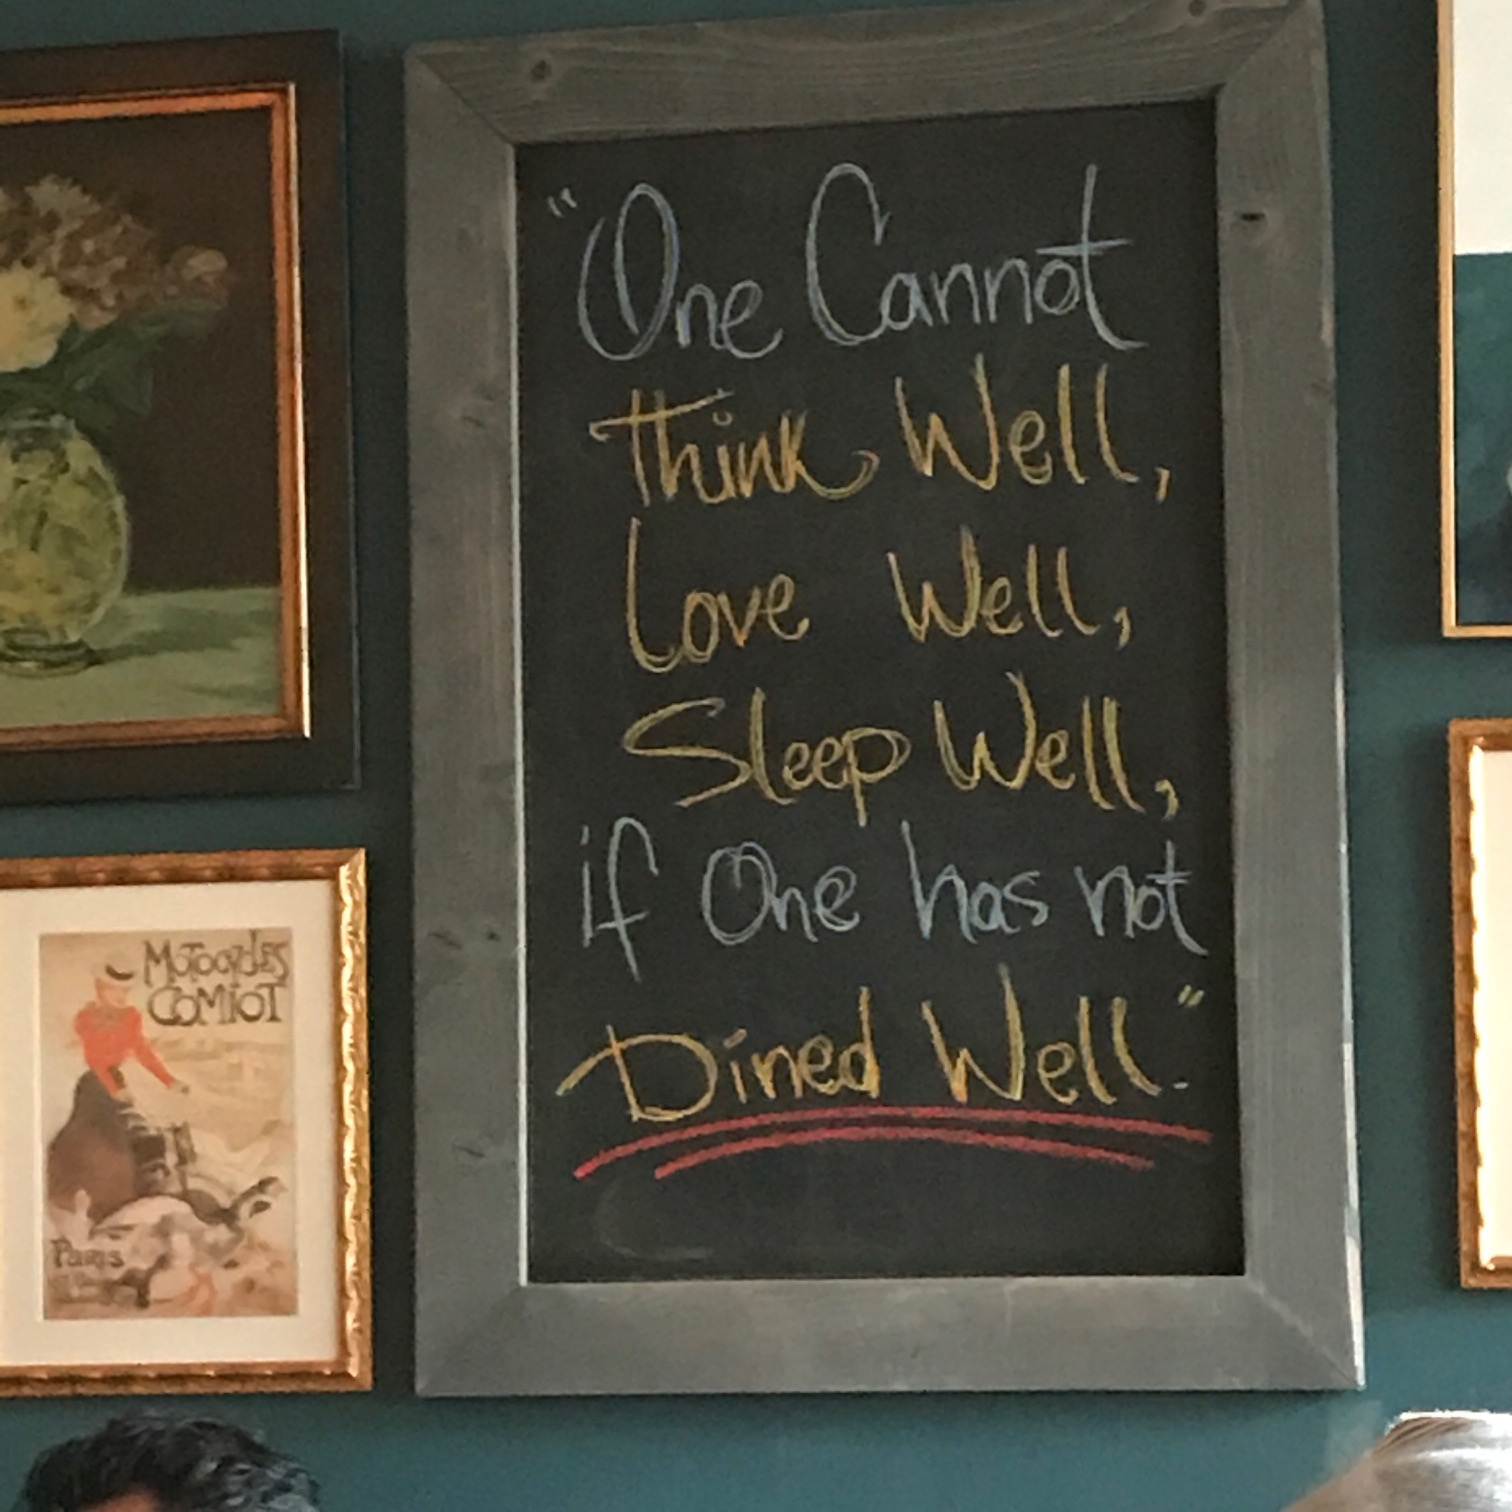 "One Cannot
Think Well,
Love Well,
Sleep Well,
if One has not
Dined Well."
MOTOCYCLES
COMIOT
PARIS